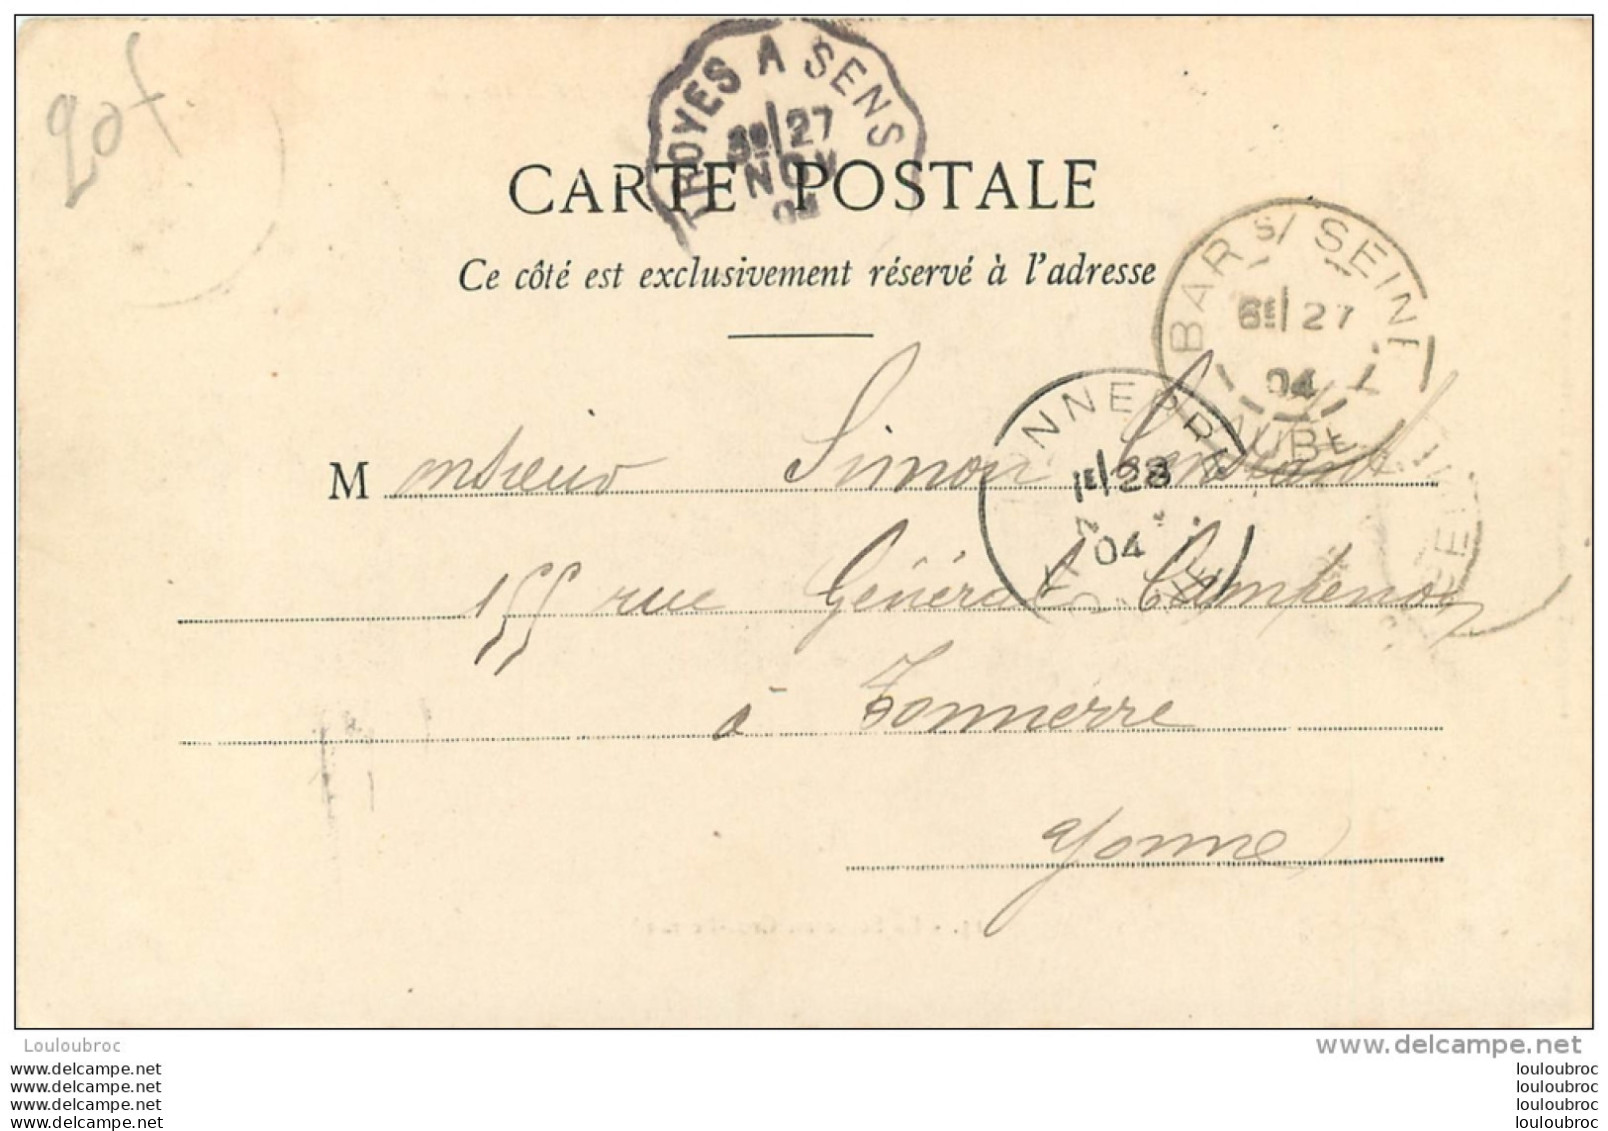 20f
TROYES A SENS
3E/27
NOV
04
CARTE POSTALE
Ce côté est exclusivement réservé à l'adresse
BAR S/ SEINE
6E/27
04
AUBE
Monsieur Simon
1E/28
04
155 rue Général Campenon
à Tonnerre
Yonne
Louloubroc
www.delcampe.net
www.delcampe.net
www.delcampe.net
www.delcampe.net
www.delcampe.net
louloubroc
louloubroc
louloubroc
louloubroc